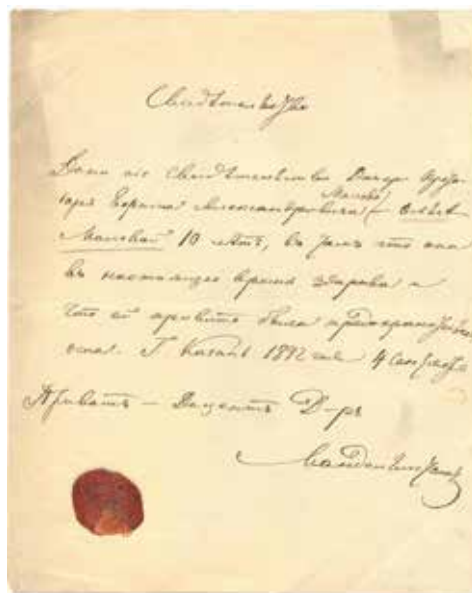 Свидѣтельство
Дано сіе Свидѣтельство Дочери
Бориса Александровича Малева – Ольгѣ
Малевой 10 лѣтъ, въ томъ что она
въ настоящее время здорова и
что ей привита была предохранительная
оспа. Г. Казань 1892 года 4 Сентября
Приватъ – Доцентъ Д-ръ